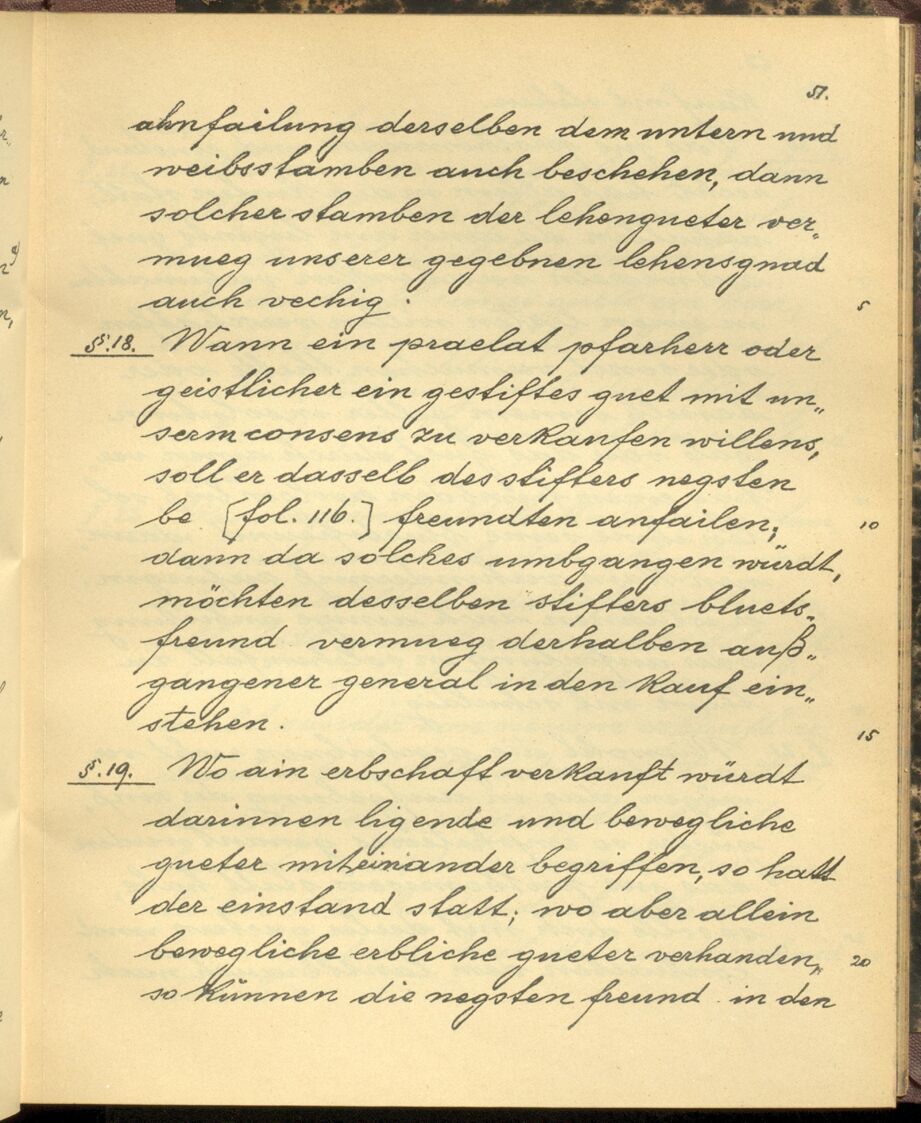 51.
ahnfailung derselben dem untern und
weibsstamben auch beschehen, dann
solcher stamben der lehengueter ver„
mueg unserer gegebnen lehensgnad
auch vechig. 5
§.18. Wann ein praelat pfarherr oder
geistlicher ein gestiftes guet mit un„
serm consens zu verkaufen willens,
soll er dasselb des stifters negsten
be [fol. 116.] freundten anfailen; 10
dann da solches umbgangen würdt,
möchten desselben stifters bluets„
freund vermueg derhalben auß„
gangener general in den kauf ein„
stehen. 15
§.19. Wo ain erbschaft verkauft würdt
darinnen ligende und bewegliche
gueter miteinander begriffen, so hatt
der einstand statt; wo aber allein
bewegliche erbliche gueter verhanden, 20
so künnen die negsten freund in den